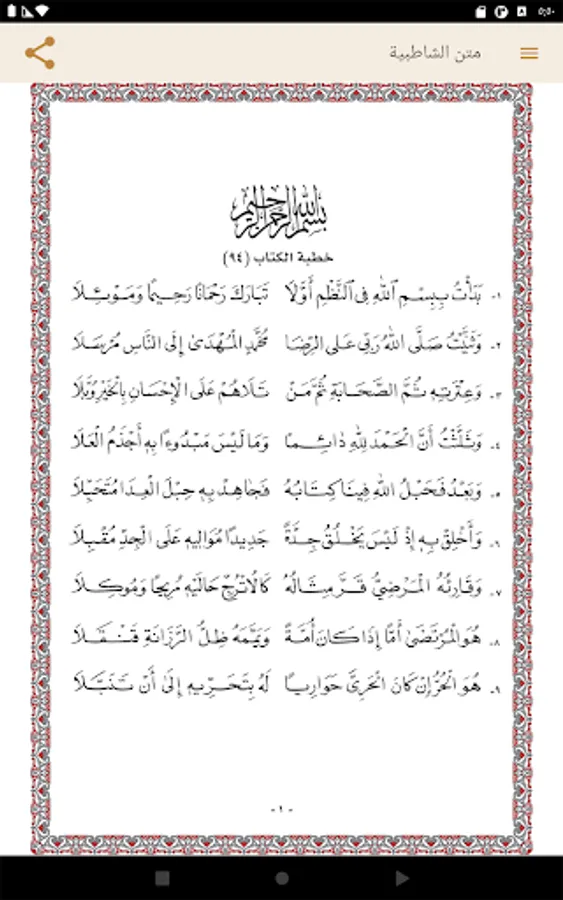 ٥:٥٠
متن الشاطبية
بسم الله الرحمن الرحيم
خطبة الكتاب (٩٤)
١. بَدَأْتُ بِبِسْمِ ٱللَّهِ فِى ٱلنَّظْمِ أَوَّلَا تَبَارَكَ رَحْمَانًا رَحِيمًا وَمَوْئِلَا
٢. وَثَنَّيْتُ صَلَّى اللَّهُ رَبِّى عَلَى الرِّضَا مُحَمَّدٍ الْمُهْدَىٰ إِلَى النَّاسِ مُرْسَلَا
٣. وَعِتْرَتِهِ ثُمَّ الصَّحَابَةِ ثُمَّ مَنْ تَلَاهُمْ عَلَى الْإِحْسَانِ بِالْخَيْرِ وُبَّلَا
٤. وَثَلَّثْتُ أَنَّ الْحَمْدَ لِلَّهِ دَائِمًا وَمَا لَيْسَ مَبْدُوءًا بِهِ أَجْذَمُ الْعَلَا
٥. وَبَعْدُ فَحَبْلُ اللَّهِ فِينَا كِتَابُهُ فَجَاهِدْ بِهِ حِبْلَ الْعِدَا مُتَحَبِّلَا
٦. وَأَخْلِقْ بِهِ إِذْ لَيْسَ يَخْلُقُ جِدَّةً جَدِيدًا مُوَالِيهِ عَلَى الْجِدِّ مُقْبِلَا
٧. وَقَارِئُهُ الْمَرْضِيُّ قَرَّ مِثَالُهُ كَالُاتْرُجِّ حَالَيْهِ مُرِيحًا وَمُوكِلَا
٨. هُوَ الْمُرْتَضَى أَمًّا إِذَا كَانَ أُمَّةً وَيَمَّمَهُ ظِلُّ الرَّزَانَةِ قَنْقَلَا
٩. هُوَ الْحُرُّ إِنْ كَانَ الْحَرِىَّ حَوَارِيًا لَهُ بِتَحَرِّيهِ إِلَىٰ أَنْ تَنَبَّلَا
- ١ -